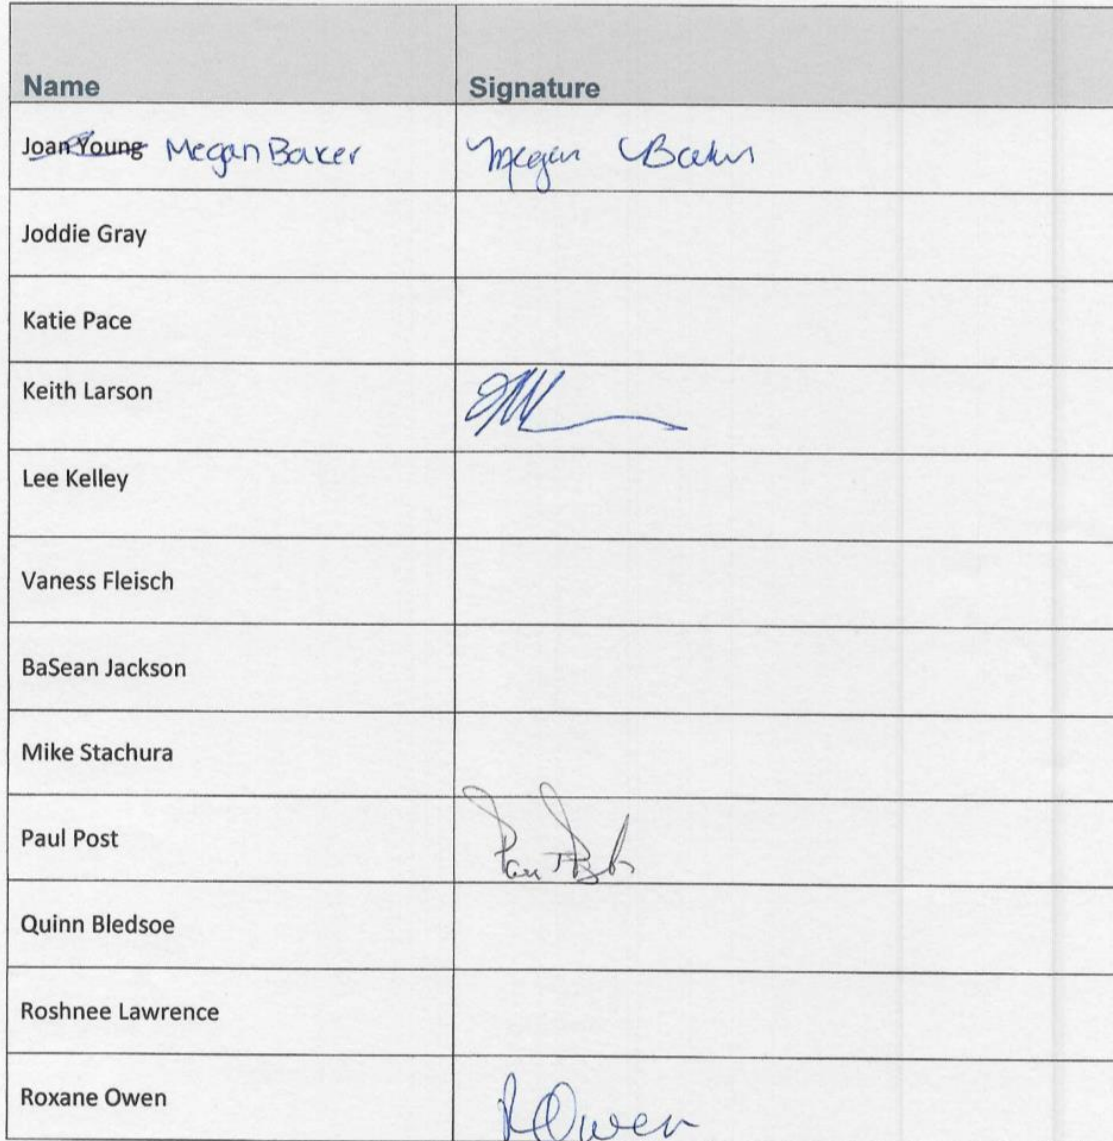 Name Signature
Joan Young Megan Baker Megan Baker
Joddie Gray
Katie Pace
Keith Larson
Lee Kelley
Vaness Fleisch
BaSean Jackson
Mike Stachura
Paul Post
Quinn Bledsoe
Roshnee Lawrence
Roxane Owen ROwen